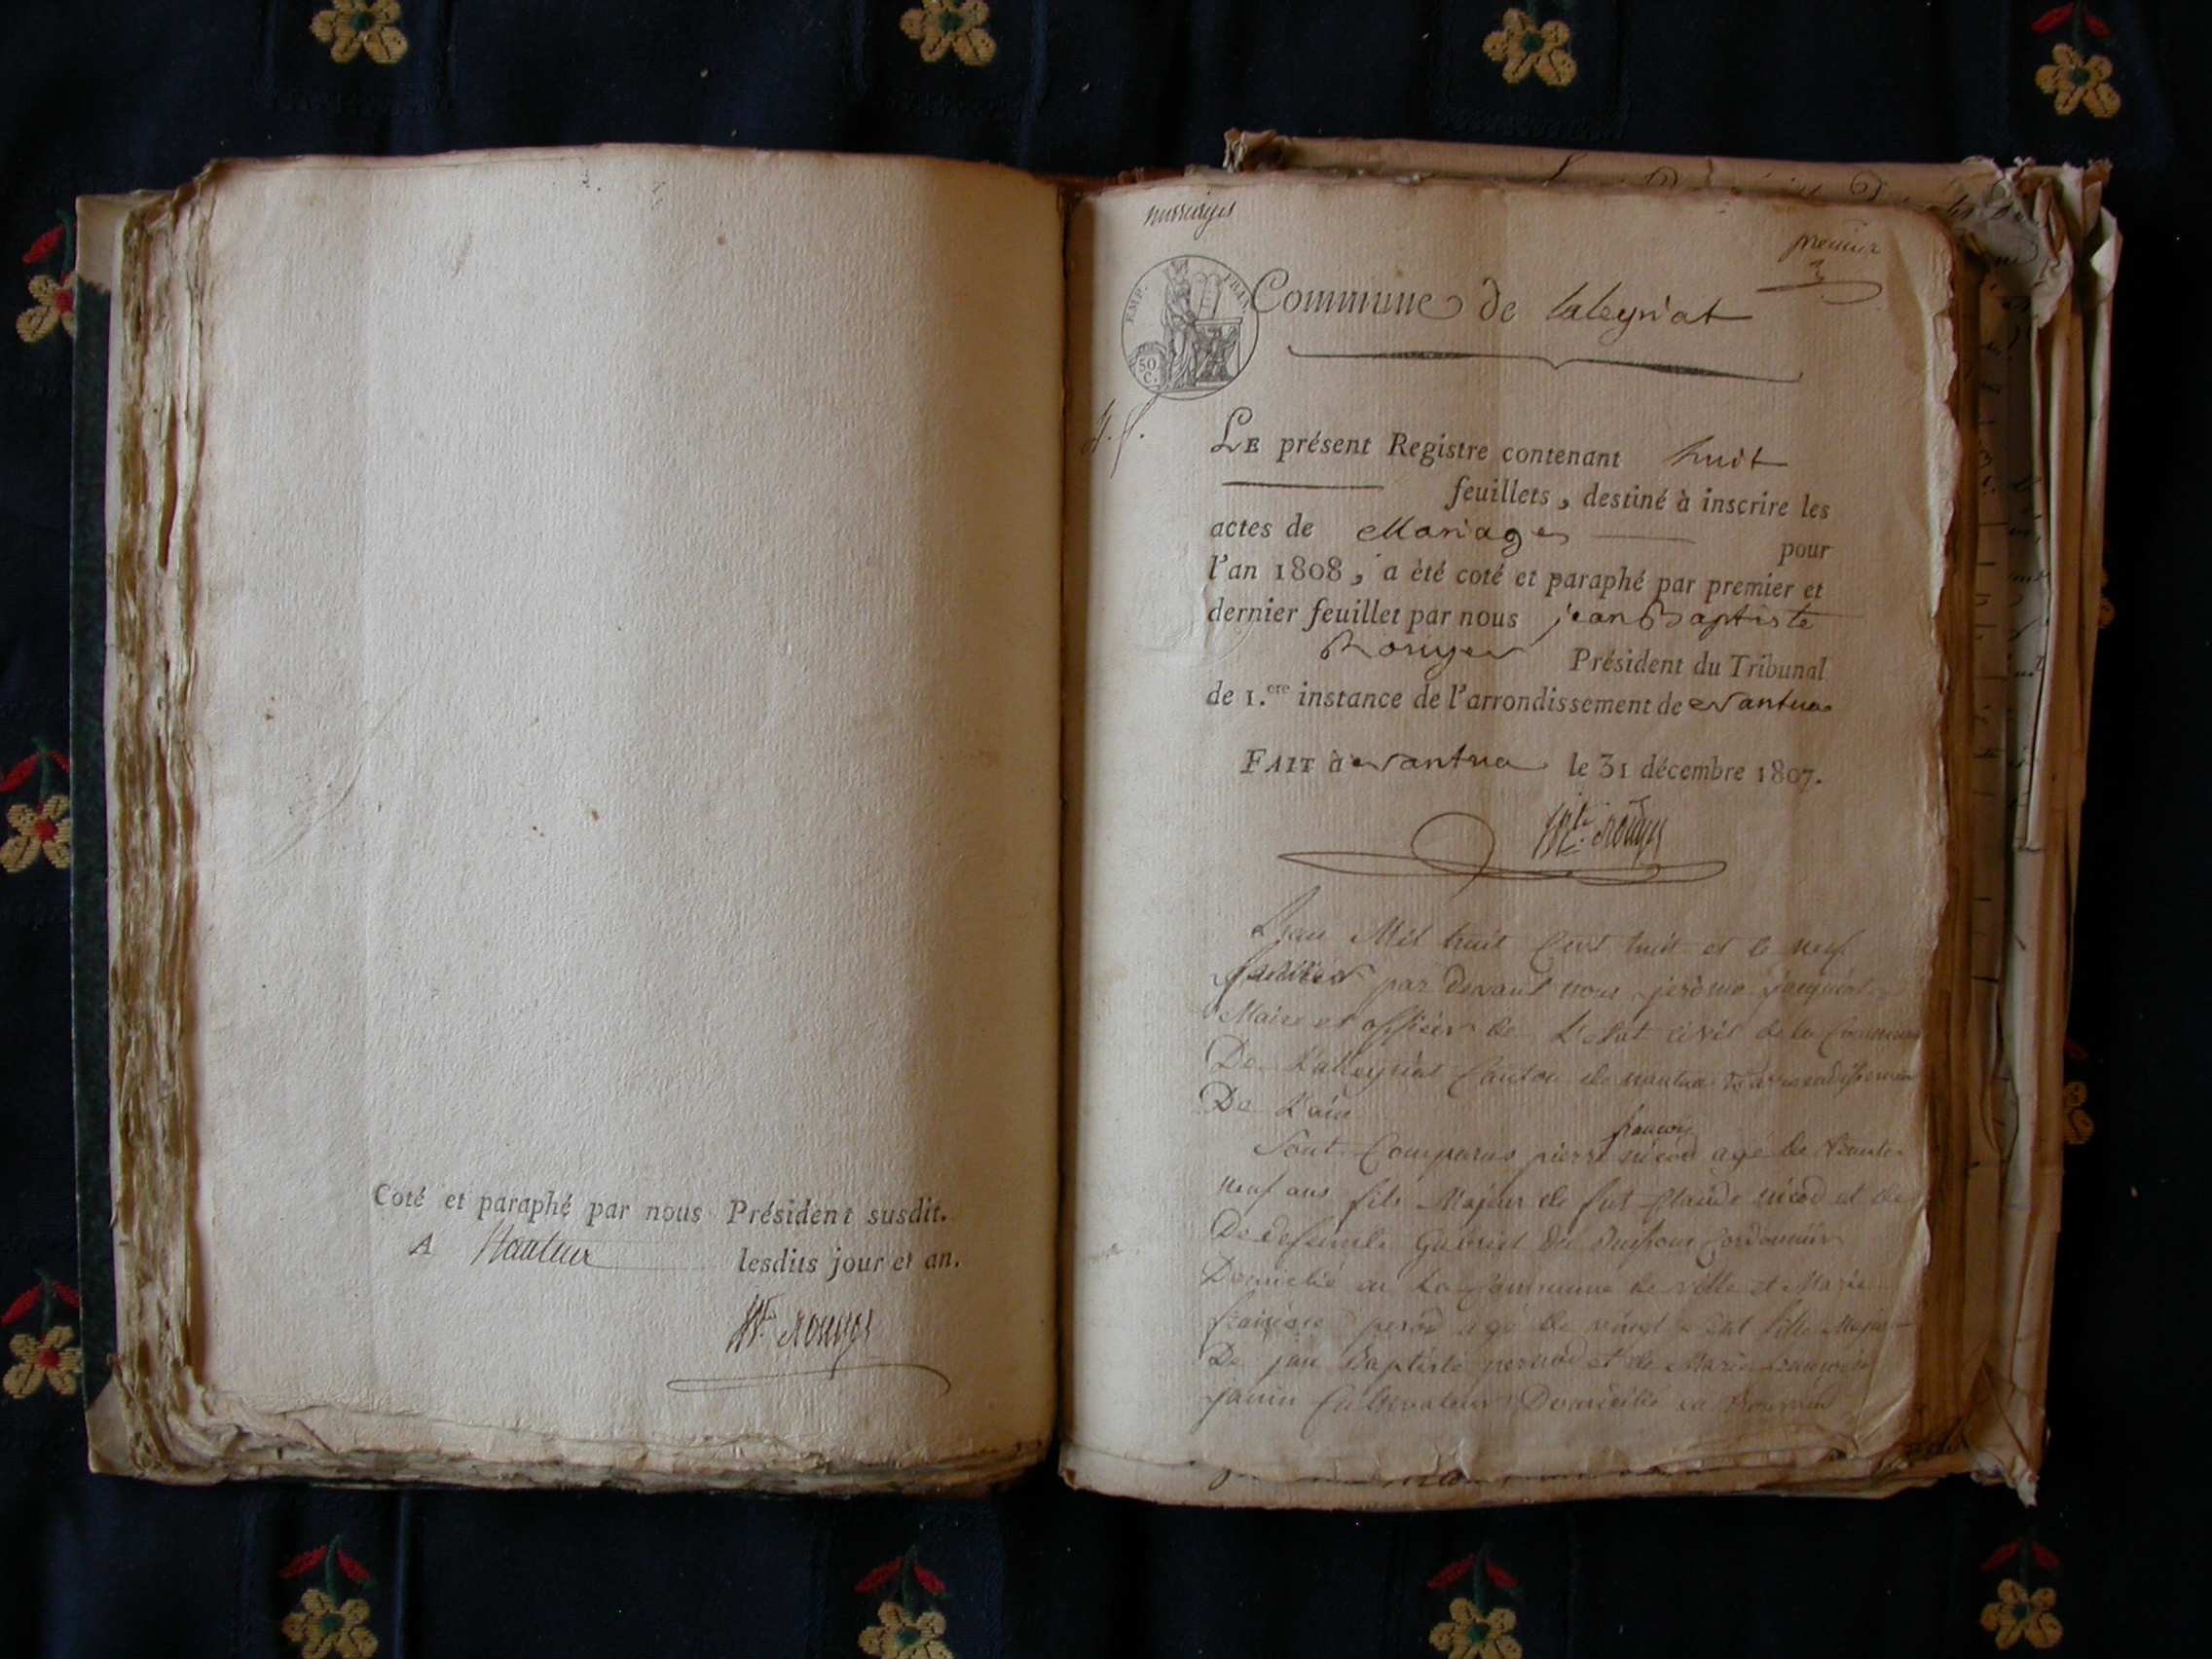 Coté et paraphé par nous Président susdit.
A Nantua lesdits jour et an.
Jn. Bte. Rouyer
marriages
premier
EMP. FRAN.
50 C.
Commune de Laleyriat
LE présent Registre contenant huit
feuillets, destiné à inscrire les
actes de Mariages pour
l'an 1808, a èté coté et paraphé par premier et
dernier feuillet par nous jean Baptiste
Rouyer Président du Tribunal
de 1.ere instance de l'arrondissement de Nantua
FAIT à Nantua le 31 décembre 1807.
Rouyer
L'an Mil huit Cent huit et le neuf
par devant nous jerôme
Maire et officier de L'etat civil de la Commune
De Lalleyriat Canton de nantua
De L'ain
francois
Sont Comparus pierre nicod agé de trente
neuf ans fils Majeur de fut Claude nicod et de
De defeunte Cordonnier
Domicilié en La Commune de et Marie
agé de vingt fille Majeur
De jan Baptiste pernod et de Marie francoise
janin Cultivateur Domicilié